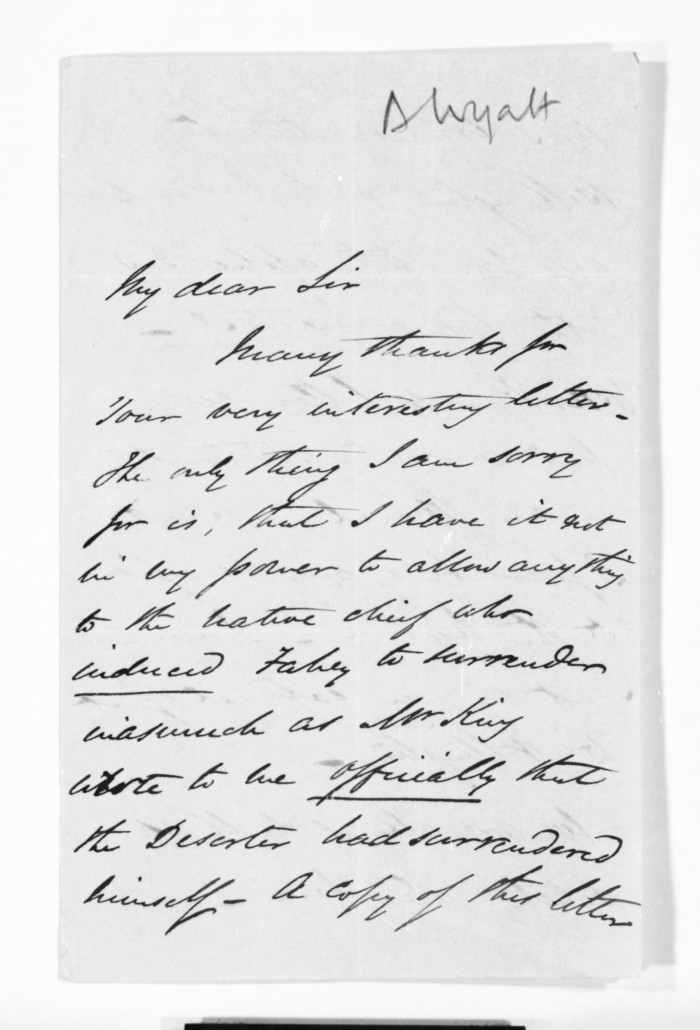 A Wyatt
My dear Sir
Many thanks for
Your very interesting letter -
The only thing I am sorry
for is, that I have it not
in my power to allow anything
to the native chief who
induced Fahey to surrender
inasmuch as Mr King
wrote to me officially that
the Deserter had surrendered
himself - A copy of this letter